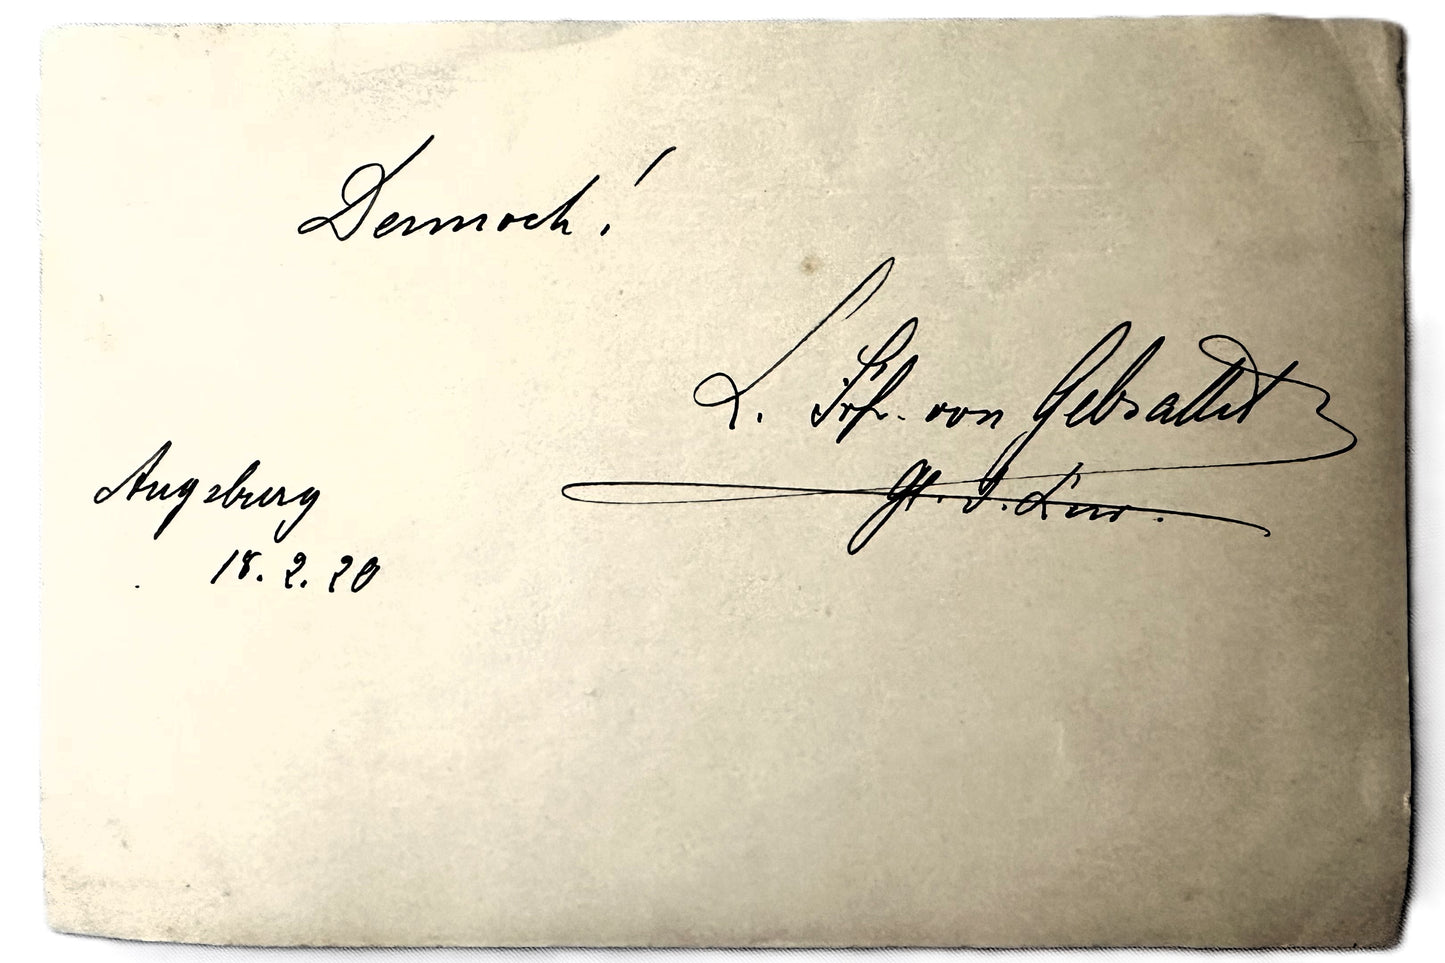 Dennoch!
L. Frh. von Gebsattel
Gl. d. Kav.
Augsburg
18. 2. 20